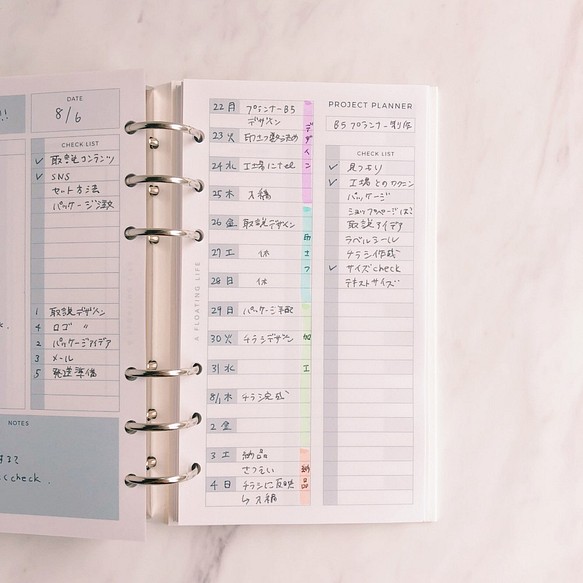 DATE
8/6
CHECK LIST
✓ 取説コンテンツ
✓ SNS
セット方法
パッケージ注文
1 取説デザイン
4 ロゴ 〃
2 パッケージアイデア
3 メール
5 発送準備
NOTES
check.
A FLOATING LIFE
22 月 プランナーB5
デザイン
23 火
24 水 工場にtel
25 木 入稿
26 金 取説デザイン
27 土 休
28 日 休
29 日 パッケージ手配
30 火 チラシデザイン
31 水
8/1 木 チラシ完成
2 金
3 土 納品
さつえい
4 日 チラシに反映
入稿
デザイン
印さつ
加工
納品
PROJECT PLANNER
B5プランナー制作
CHECK LIST
✓ 見つもり
✓ 工場とのカクニン
パッケージ
取説アイデア
ラベルシール
チラシ作成
✓ サイズcheck
テキストサイズ